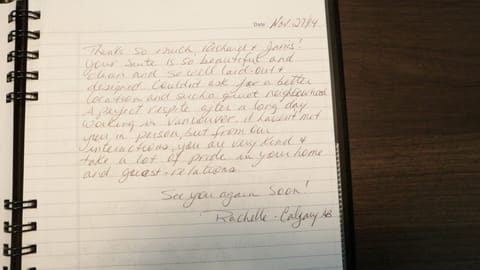 Date Nov. 27/14
Thanks so much, Richard & Janis!
Your suite is so beautiful and
clean and so well laid-out &
designed. Couldn't ask for a better
location and such a quiet neighbourhood.
A perfect respite after a long day
working in Vancouver. I haven't met
you in person, but from our
interactions, you are very kind &
take a lot of pride in your home
and guest-relations.
See you again soon!
Rachelle - Calgary AB